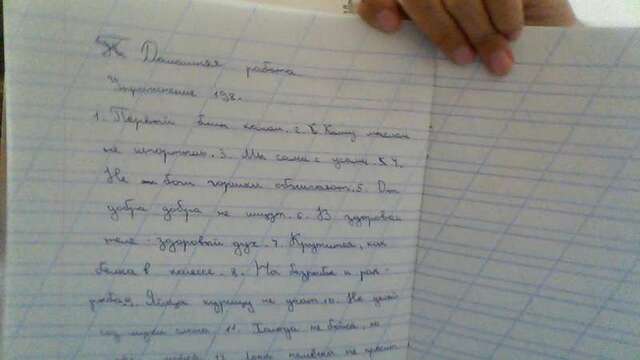 Домашняя работа
Упражнение 198.
1. Первый блин комом. 2. Кашу маслом
не испортишь. 3. Мы сами с усами. 4.
Не боги горшки обжигают. 5. От
добра добра не ищут. 6. В здоровом
теле - здоровый дух. 7. Крутится, как
белка в колесе. 8. На безрыбье и рак -
рыба. 9. Яйца курицу не учат. 10. Не
11. не бойся,
не